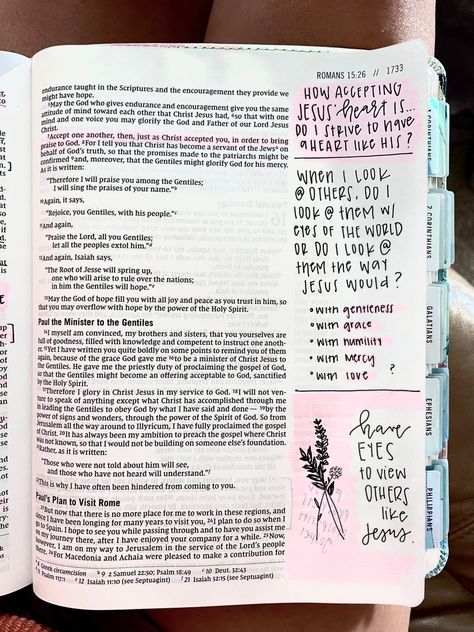 ROMANS 15:26 // 1733
endurance taught in the Scriptures and the encouragement they provide we
might have hope.
5May the God who gives endurance and encouragement give you the same
attitude of mind toward each other that Christ Jesus had, 6so that with one
mind and one voice you may glorify the God and Father of our Lord Jesus
Christ.
7Accept one another, then, just as Christ accepted you, in order to bring
praise to God. 8For I tell you that Christ has become a servant of the Jews a on
behalf of God's truth, so that the promises made to the patriarchs might be
confirmed 9and, moreover, that the Gentiles might glorify God for his mercy.
As it is written:
"Therefore I will praise you among the Gentiles;
I will sing the praises of your name." b
10Again, it says,
"Rejoice, you Gentiles, with his people." c
11And again,
"Praise the Lord, all you Gentiles;
let all the peoples extol him." d
12And again, Isaiah says,
"The Root of Jesse will spring up,
one who will arise to rule over the nations;
in him the Gentiles will hope." e
13May the God of hope fill you with all joy and peace as you trust in him, so
that you may overflow with hope by the power of the Holy Spirit.
Paul the Minister to the Gentiles
14I myself am convinced, my brothers and sisters, that you yourselves are
full of goodness, filled with knowledge and competent to instruct one anoth-
er. 15Yet I have written you quite boldly on some points to remind you of them
again, because of the grace God gave me 16to be a minister of Christ Jesus to
the Gentiles. He gave me the priestly duty of proclaiming the gospel of God,
so that the Gentiles might become an offering acceptable to God, sanctified
by the Holy Spirit.
17Therefore I glory in Christ Jesus in my service to God. 18I will not ven-
ture to speak of anything except what Christ has accomplished through me
in leading the Gentiles to obey God by what I have said and done — 19by the
power of signs and wonders, through the power of the Spirit of God. So from
Jerusalem all the way around to Illyricum, I have fully proclaimed the gospel
of Christ. 20It has always been my ambition to preach the gospel where Christ
was not known, so that I would not be building on someone else's foundation.
21Rather, as it is written:
"Those who were not told about him will see,
and those who have not heard will understand." f
22This is why I have often been hindered from coming to you.
Paul's Plan to Visit Rome
23But now that there is no more place for me to work in these regions, and
since I have been longing for many years to visit you, 24I plan to do so when I
go to Spain. I hope to see you while passing through and to have you assist me
on my journey there, after I have enjoyed your company for a while. 25Now,
however, I am on my way to Jerusalem in the service of the Lord's people
there. 26For Macedonia and Achaia were pleased to make a contribution for
a 8 Greek circumcision b 9 2 Samuel 22:50; Psalm 18:49 c 10 Deut. 32:43
d 11 Psalm 117:1 e 12 Isaiah 11:10 (see Septuagint) f 21 Isaiah 52:15 (see Septuagint)
HOW ACCEPTING
JESUS' heart IS...
DO I STRIVE TO HAVE
A HEART LIKE HIS?
WHEN I LOOK
@ OTHERS, DO I
LOOK @ THEM W/
EYES OF THE WORLD
OR DO I LOOK @
THEM THE WAY
JESUS WOULD?
• with gentleness
• with grace
• with humility
• with mercy
• with love ?
have
EYES
TO VIEW
OTHERS
like
Jesus.
CORINTHIANS
2 CORINTHIANS
GALATIANS
EPHESIANS
PHILIPPIANS